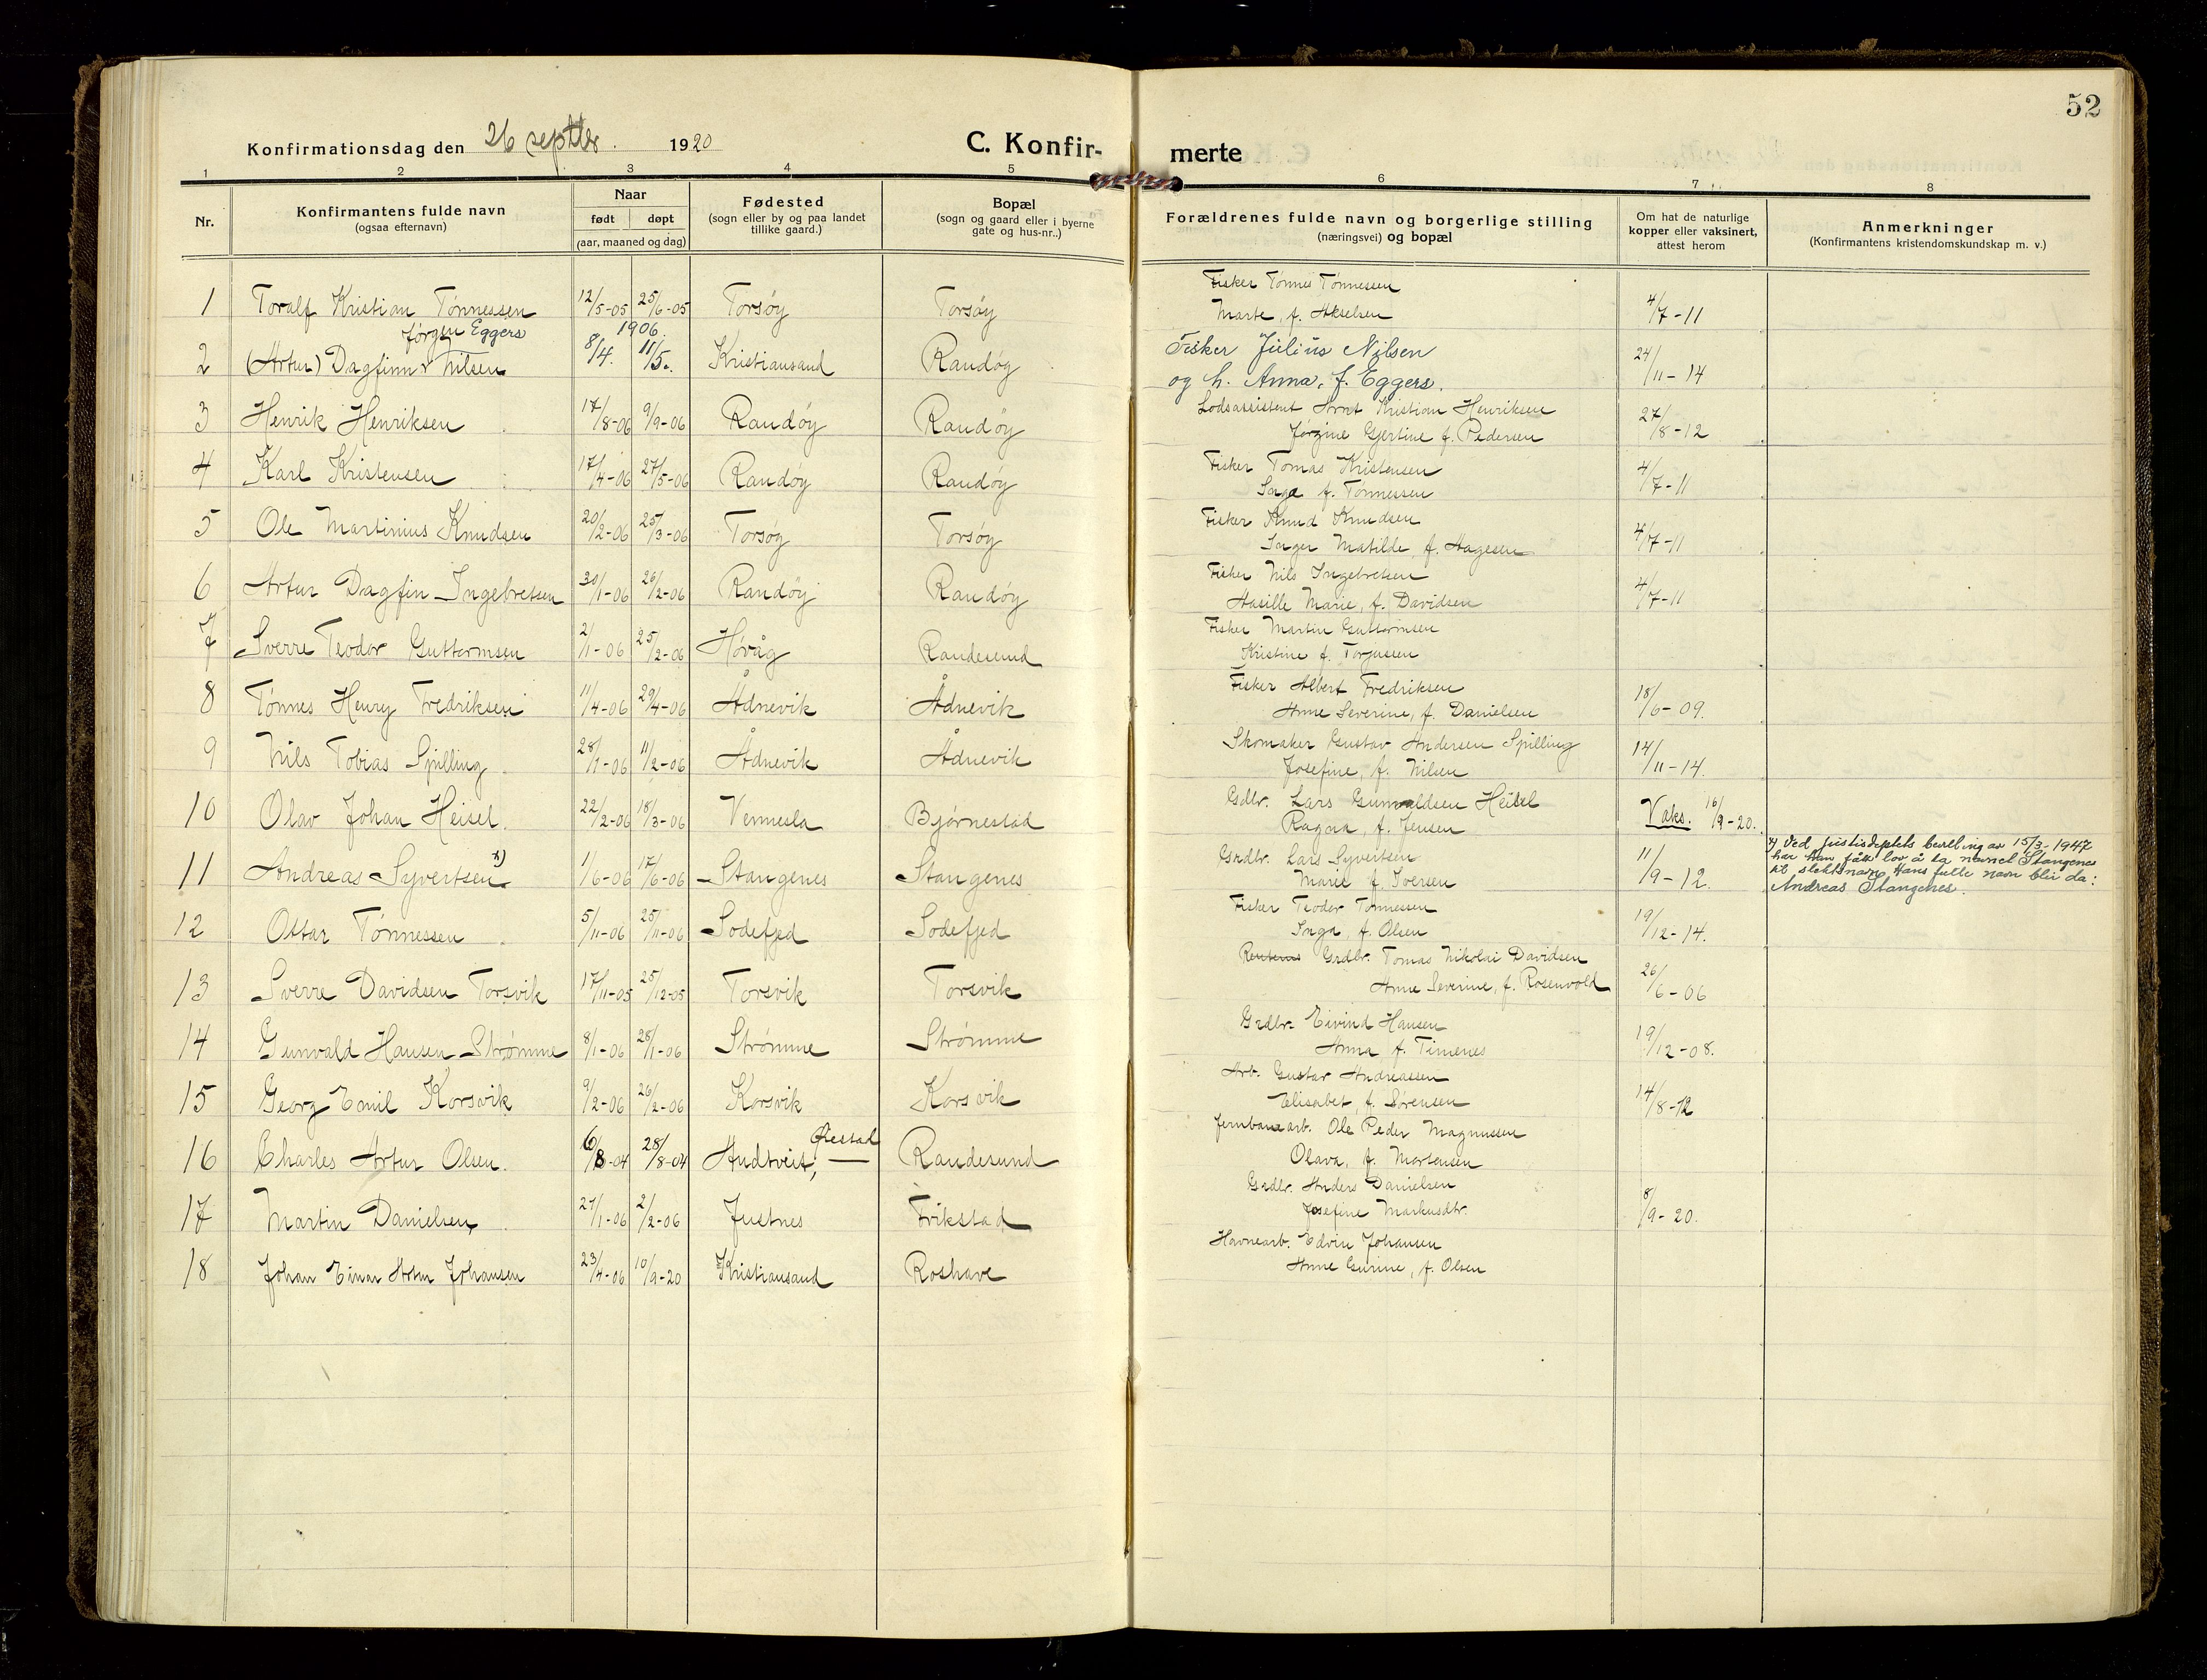 52
Konfirmationsdag den 26 septbr. 1920
C. Konfir-
merte
1 2 3 4 5 6 7 8
Nr.
Konfirmantens fulde navn
(ogsaa efternavn)
Naar
født døpt
(aar, maaned og dag)
Fødested
(sogn eller by og paa landet
tillike gaard.)
Bopæl
(sogn og gaard eller i byerne
gate og hus-nr..)
Forældrenes fulde navn og borgerlige stilling
(næringsvei) og bopæl
Om hat de naturlige
kopper eller vaksinert,
attest herom
Anmerkninger
(Konfirmantens kristendomskundskap m. v.)
Fisker Tønnes Tønnessen
1 Toralf Kristian Tønnessen 12/5-05 25/6-05 Torsøy Torsøy Marte, f. Akselsen 4/7-11
Jørgen Eggers 1906.
2 (Artur) Dagfinn Nilsen 8/4. 11/5. Kristiansand Randøy Fisker Julius Nilsen 24/11-14
og h. Anna, f. Eggers.
3 Henrik Henriksen 17/8-06 9/9-06 Randøy Randøy Lodsassistent Arnt Kristian Henriksen 27/8-12
Jørgine Gjertine f. Pedersen
4 Karl Kristensen 17/4-06 27/5-06 Randøy Randøy Fisker Tomas Kristensen 4/7-11
Inga f. Tønnessen
5 Ole Martinius Knudsen 20/2-06 25/3-06 Torsøy Torsøy Fisker Knud Knudsen 4/7-11
Inger Matilde, f. Aagesen
6 Artur Dagfin Ingebretsen 30/1-06 26/2-06 Randøy Randøy Fisker Nils Ingebretsen 4/7-11
Hasille Marie, f. Davidsen
7 Sverre Teodor Guttormsen 2/1-06 25/2-06 Høvåg Randesund Fisker Martin Guttormsen
Kristine f. Torjussen
8 Tønnes Henry Fredriksen 11/4-06 29/4-06 Ådnevik Ådnevik Fisker Albert Fredriksen 18/6-09.
Anne Severine, f. Danielsen
9 Nils Tobias Spilling 28/1-06 11/2-06 Ådnevik Ådnevik Skomaker Gustav Andersen Spilling 14/11-14.
Josefine, f. Nilsen
10 Olav Johan Heisel. 22/2-06 18/3-06 Vennesla Bjørnestad Gdbr. Lars Gunvaldsen Heisel Vaks. 16/9-20.
Ragna, f. Jensen
11 Andreas Syvertsen x) 1/6-06 17/6-06 Stangenes Stangenes Grdbr. Lars Syvertsen 11/9-12.
Marie f. Iversen
x) Ved justisdeptets bevilling av 15/3-1947
har han fått lov å ta navnet Stangenes
til slektsnavn. Hans fulle navn blir da:
Andreas Stangenes.
12 Ottar Tønnessen 5/11-06 25/11-06 Sodefjed Sodefjed Fisker Teodor Tønnessen 19/12-14.
Inga, f. Olsen
13 Sverre Davidsen Torsvik 17/11-05 25/12-05 Torsvik Torsvik Grdbr. Tomas Nikolai Davidsen 26/6-06
Anne Severine, f. Rosenvold
14 Gunvald Hansen Strømme 8/1-06 28/1-06 Strømme Strømme Grdbr. Eivind Hansen 19/12-08.
Anna f. Timenes
15 Georg Emil Korsvik 9/2-06 26/2-06 Korsvik Korsvik Arb. Gustav Andreassen 14/8-12
Elisabet, f. Sørensen
16 Charles Artur Olsen. 6/8-04 28/8-04 Andtveit, Øiestad Randesund Jernbanearb. Ole Peder Magnussen
Olava, f. Mortensen
17 Martin Danielsen 27/1-06 2/2-06 Justnes Frikstad Grdbr. Anders Danielsen 8/9-20.
Josefine Markusdtr.
18 Johan Einar Artur Johansen 23/4-06 10/9-20 Kristiansand Roshave Havnearb. Edvin Johansen
Anne Gurine, f. Olsen